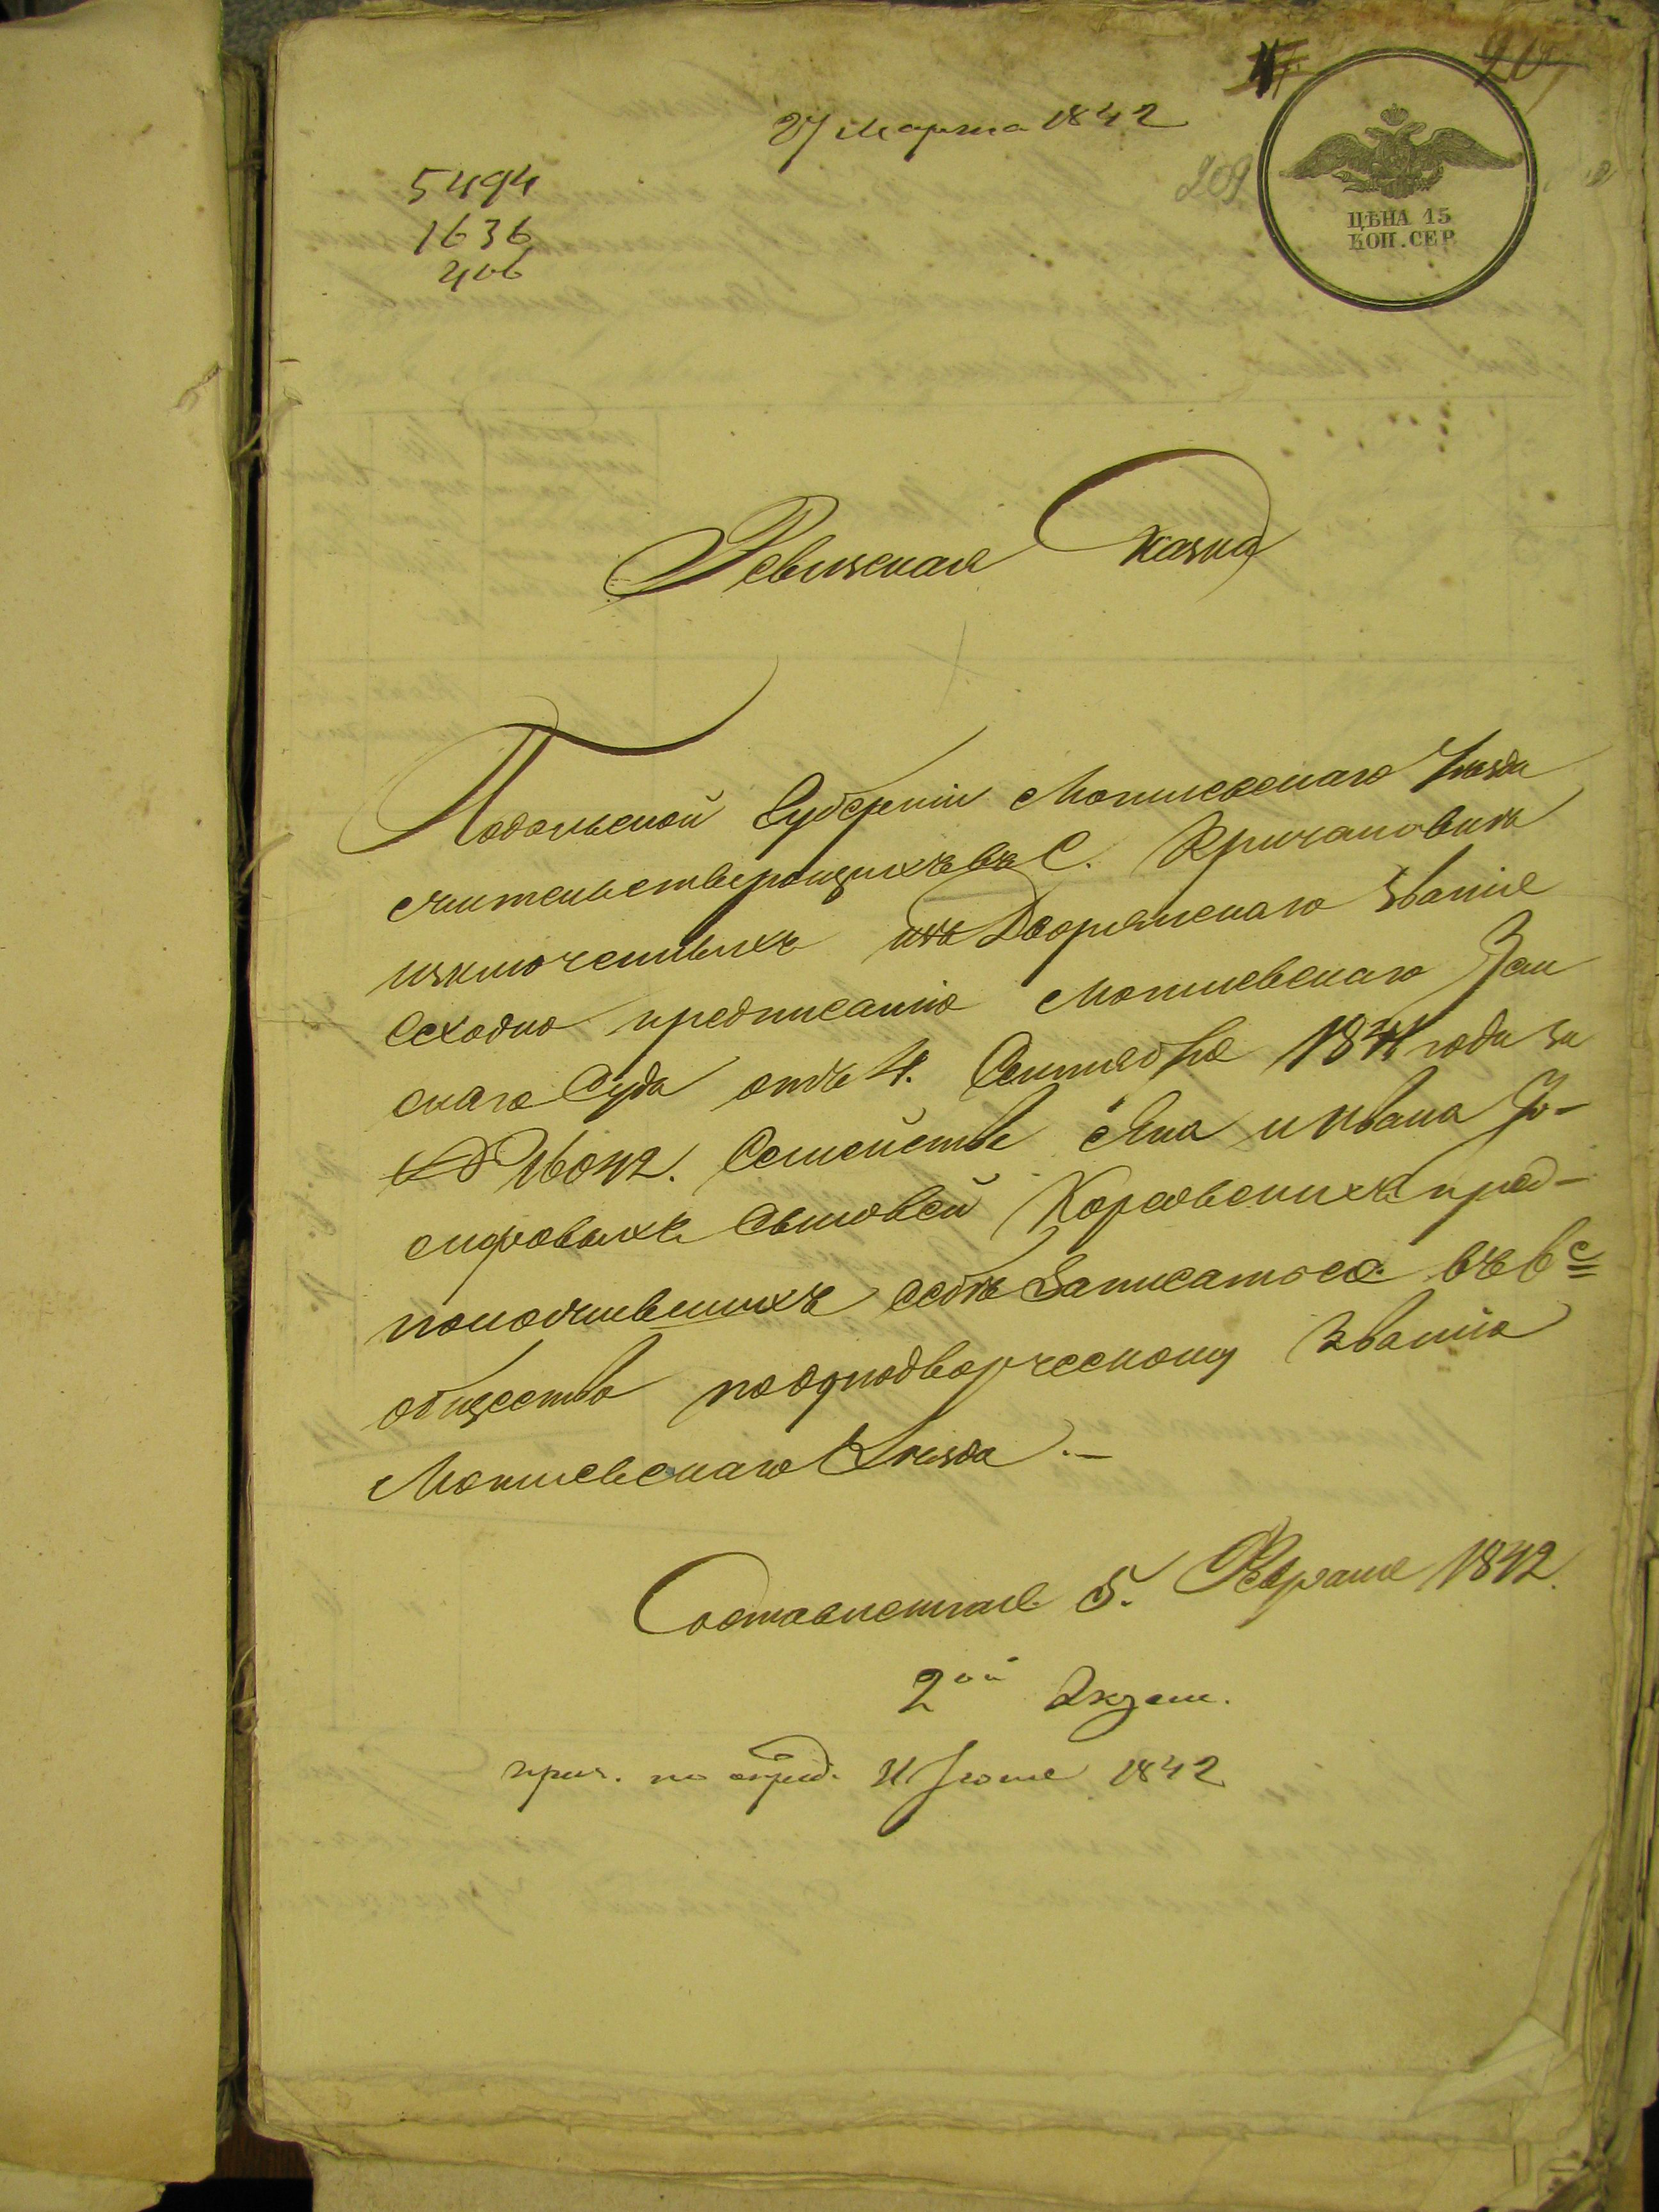 27 Марта 1842
5494
1636
406
209
ЦѢНА 15
КОП. СЕР.
Ревизская Сказка
Подольской Губерніи Могилевскаго Уезда
жительствующихъ въ С. Кричановки
изключенныхъ изъ Дворянскаго званія
Сходно предписанію Могилевскаго Зем
скаго Суда отъ 4. Сентября 1841 года за
№ 16042. Семействе Яна и Ивана
Сыновей
себѣ Записатося въ
общество по однодворческому званію
Могилевскаго Уезда.—
Составленная 5. Февраля 1842.
2ой Экзем.
прич. по опред. Іюня 1842